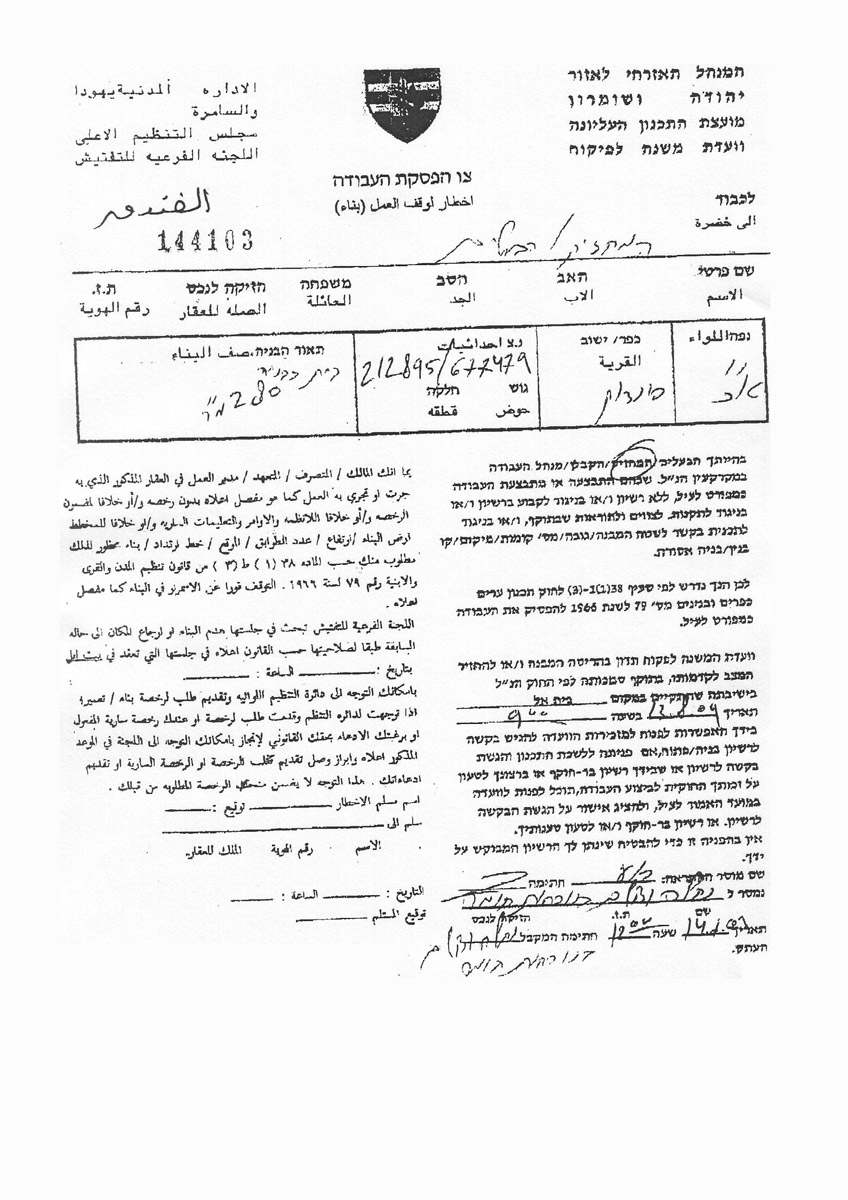 המנהל האזרחי לאזור
יהודה ושומרון
מועצת התכנון העליונה
וועדת משנה לפיקוח
الاداره المدنية يهودا
والسامرة
مجلس التنظيم الاعلى
اللجنه الفرعيه للتفتيش
צו הפסקת העבודה
اخطار لوقف العمل (بناء)
الفندق
144103
לכבוד
الى حضرة
המחזיק / הבעלים
שם פרטי האב הסב משפחה חזיקה לנכס ת.ז.
الاسم الاب الجد العائلة الصله للعقار رقم الهوية
נפה/اللواء כפר/ ישוב נ.צ احداثيات תאור הבניה، صف البناء
القرية
212895/677479
בית בבניה
גוש חלקה
280 מ"ר
حوض قطعه
פונדוק
בהיותך הבעלים/המחזיק/הקבלן/מנהל העבודה
במקרקעין הנ"ל, שבהם התבצעה או מתבצעת העבודה
כמפורט לעיל, ללא רשיון ו/או בניגוד לקבוע ברשיון ו/או
בניגוד לתקנות, לצווים ולהוראות שבתוקף, ו/או בניגוד
לתכנית בקשר לשטח המבנה/גובה/מס' קומות/מיקום/קו
בנין/בניה אסורת.
לכן הנך נדרש לפי סעיף 38(1)-(3) לחוק תכנון ערים
כפרים ובנינים מס' 79 לשנת 1966 להפסיק את העבודה
כמפורט לעיל.
וועדת המשנה לפקוח תדון בהריסת המבנה ו/או להחזיר
המצב לקדמותו, בתוקף סמכותה לפי החוק הנ"ל
בישיבתה שתתקיים במקום בית אל
תאריך בשעה 9⁰⁰
בידך האפשרות לפנות למזכירות הוועדה להגיש בקשה
לרשיון בניה/פתוח, אם פניתה ללשכת התכנון והגשת
בקשה לרשיון או שבידך רשיון בר-תוקף או ברצונך לטעון
על זכותך החוקית לביצוע העבודה, תוכל לפנות לוועדה
במועד האמור לעיל, ולהציג אישור על הגשת הבקשה
לרשיון. או רשיון בר-תוקף ו/או לטעון טענותיך.
אין בהפניה זו כדי להבטיח שינתן לך הרשיון המבוקש על
ידך.
שם מוסר ההתראה: חתימה
נמסר ל
שם ת.ז. חזיקה לנכס
תאריך שעה 12⁰⁰ חתימת המקבל
העתק.
بما انك المالك / المتصرف / المتعهد / مدير العمل في العقار المذكور الذي به
جرت او تجري به العمل كما هو مفصل اعلاه بدون رخصه و/أو خلافا لمضمون
الرخصه و/أو خلافا للانظمه والاوامر والتعليمات الساريه و/او خلافا للمخطط
ارض البناء /ارتفاع / عدد الطوابق / الموقع / خط ارتداد / بناء محظور لذلك
مطلوب منك حسب الماده ٣٨ (١) ط (٣) من قانون تنظيم المدن والقرى
والابنية رقم ٧٩ لسنة ١٩٦٦ . التوقف فورا عن الاستمرار في البناء كما مفصل
اعلاه .
اللجنة الفرعية للتفتيش تبحث في جلستها هدم البناء او ارجاع المكان الى حاله
السابقة طبقا لصلاحيتها حسب القانون اعلاه في جلستها التي تعقد في بيت ايل
بتاريخ : الساعة :
بامكانك التوجه الى دائرة التنظيم اللوائيه وتقديم طلب لرخصة بناء / تعمير؛
اذا توجهت لدائره التنظم وقدمت طلب لرخصة او عندك رخصة سارية المفعول
او برغبتك الادعاء بحقك القانوني لإنجاز بامكانك التوجه الى اللجنة في الموعد
المذكور اعلاه وابراز وصل تقديم طلب للرخصة او الرخصة السارية او تقديم
ادعاءاتك . هذا التوجه لا يضمن منحك الرخصة المطلوبه من قبلك .
اسم مسلم الاخطار توقيع :
سلم الى
الاسم رقم الهوية الملك للعقار.
التاريخ : الساعة :
توقيع المستلم